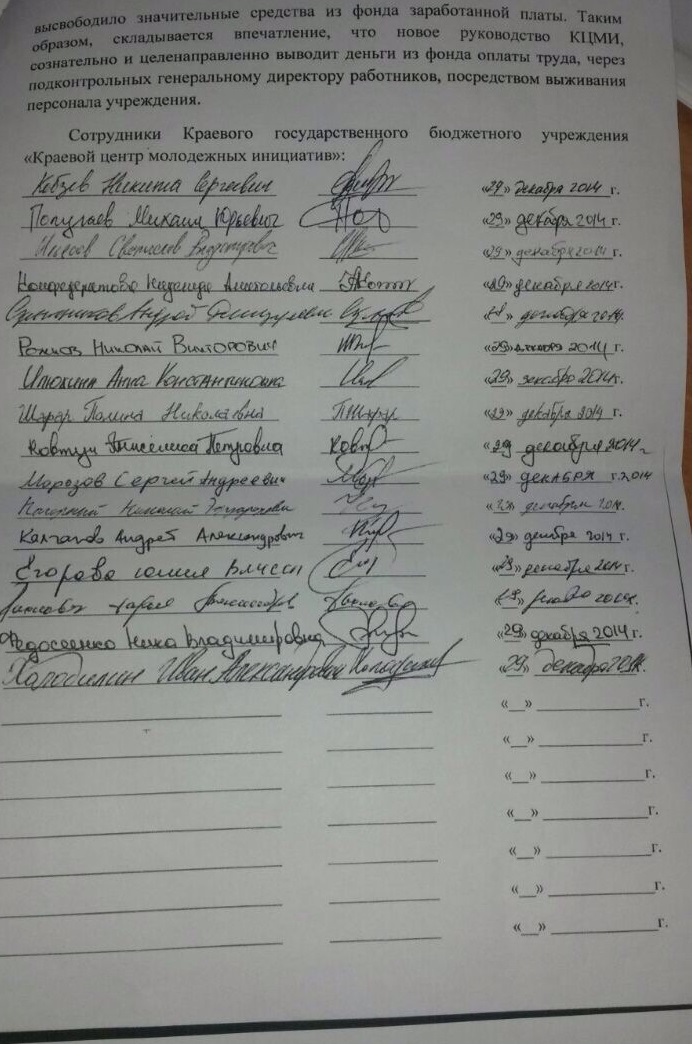 высвободило значительные средства из фонда заработанной платы. Таким
образом, складывается впечатление, что новое руководство КЦМИ,
сознательно и целенаправленно выводит деньги из фонда оплаты труда, через
подконтрольных генеральному директору работников, посредством выживания
персонала учреждения.
Сотрудники Краевого государственного бюджетного учреждения
«Краевой центр молодежных инициатив»:
Кобзев Никита Сергеевич «29» декабря 2014 г.
Попугаев Михаил Юрьевич «29» декабря 2014 г.
«29» декабря 2014 г.
Конфедератова Надежда Анатольевна «29» декабря 2014 г.
Андрей декабря 2014
Николай Викторович «29» декабря 2014 г.
Илюхина Анна Константиновна «29» декабря 2014 г.
Шарар Полина Николаевна «29» декабря 2014 г.
Ковтун Петровна «29» декабря 2014 г.
Морозов Сергей Андреевич «29» декабря г. 2014
Николай декабря 2014
Калганов Андрей Александрович «29» декабря 2014 г.
Егорова Юлия «29» декабря 2014 г.
«29»
Федосеенко Ника Владимировна «29» декабря 2014 г.
Холодилин Иван Александрович «29» декабря 2014 г.
«__» г.
«__» г.
«__» г.
«__» г.
«__» г.
«__» г.
«__» г.